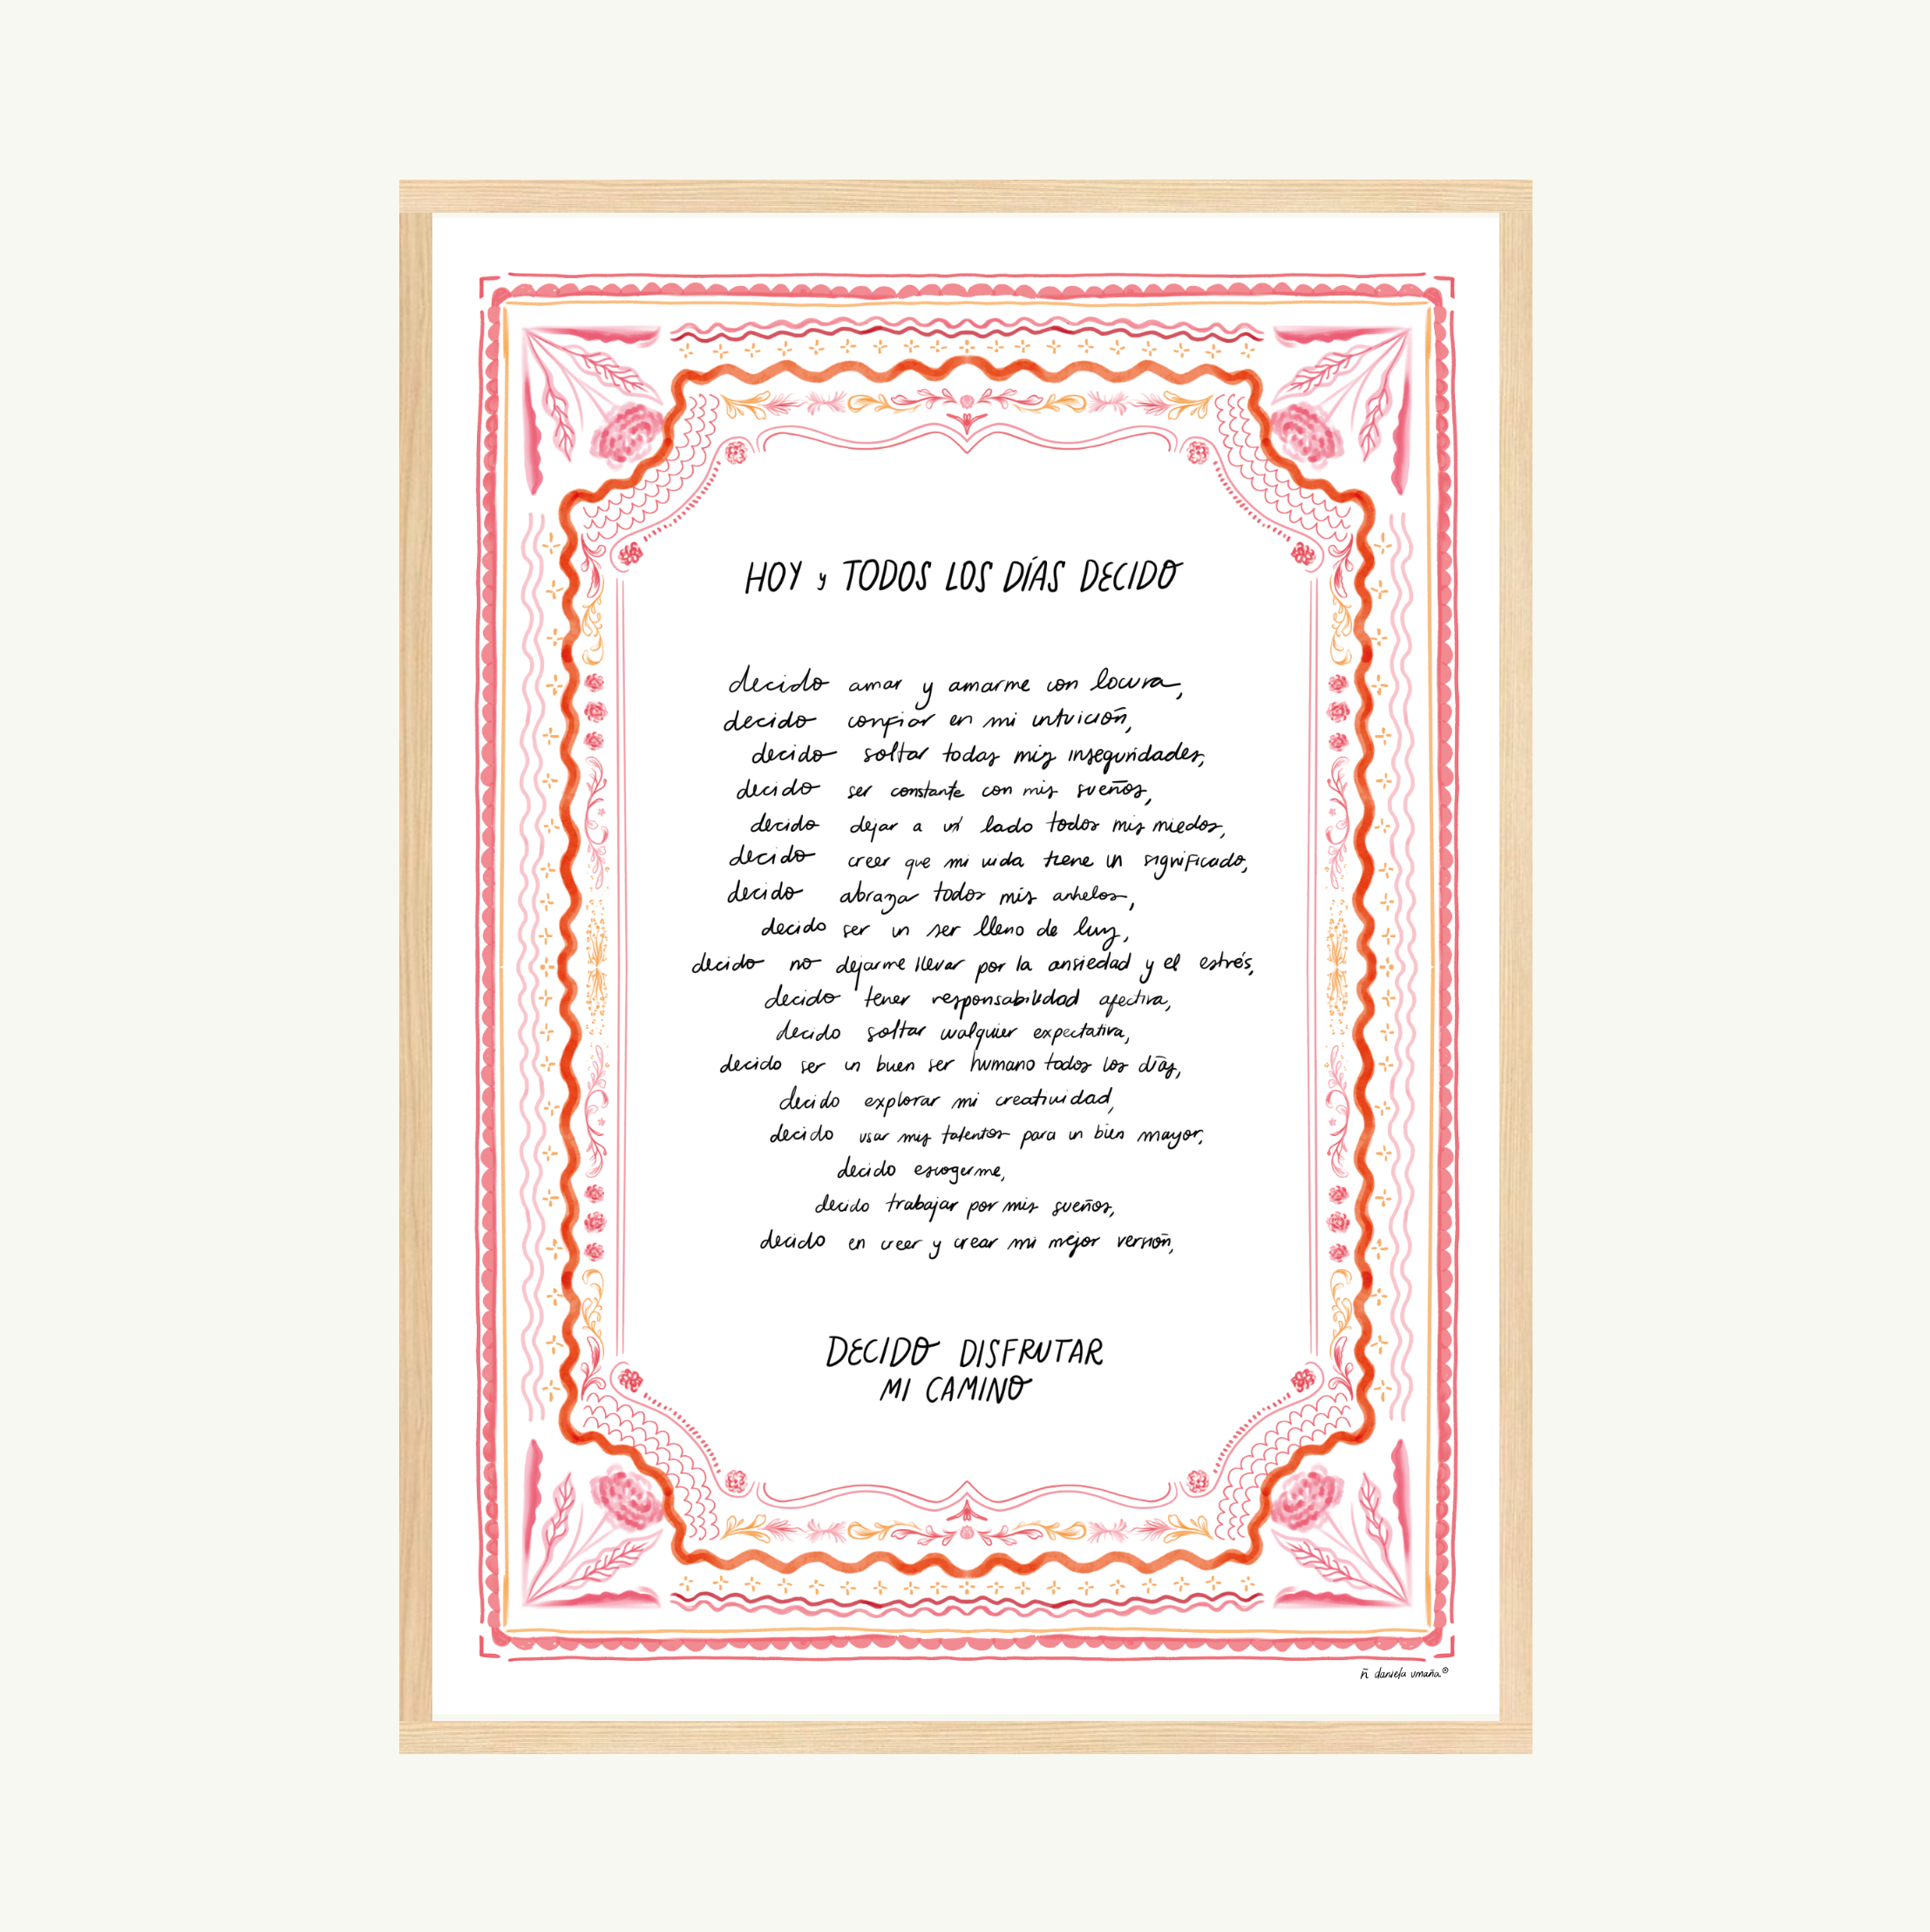 HOY y TODOS LOS DÍAS DECIDO
decido amar y amarme con locura,
decido confiar en mi intuición,
decido soltar todas mis inseguridades,
decido ser constante con mis sueños,
decido dejar a un lado todos mis miedos,
decido creer que mi vida tiene un significado,
decido abrazar todos mis anhelos,
decido ser un ser lleno de luz,
decido no dejarme llevar por la ansiedad y el estrés,
decido tener responsabilidad afectiva,
decido soltar cualquier expectativa,
decido ser un buen ser humano todos los días,
decido explorar mi creatividad,
decido usar mis talentos para un bien mayor,
decido escogerme,
decido trabajar por mis sueños,
decido en creer y crear mi mejor versión,
DECIDO DISFRUTAR
MI CAMINO
ñ daniela umaña.®